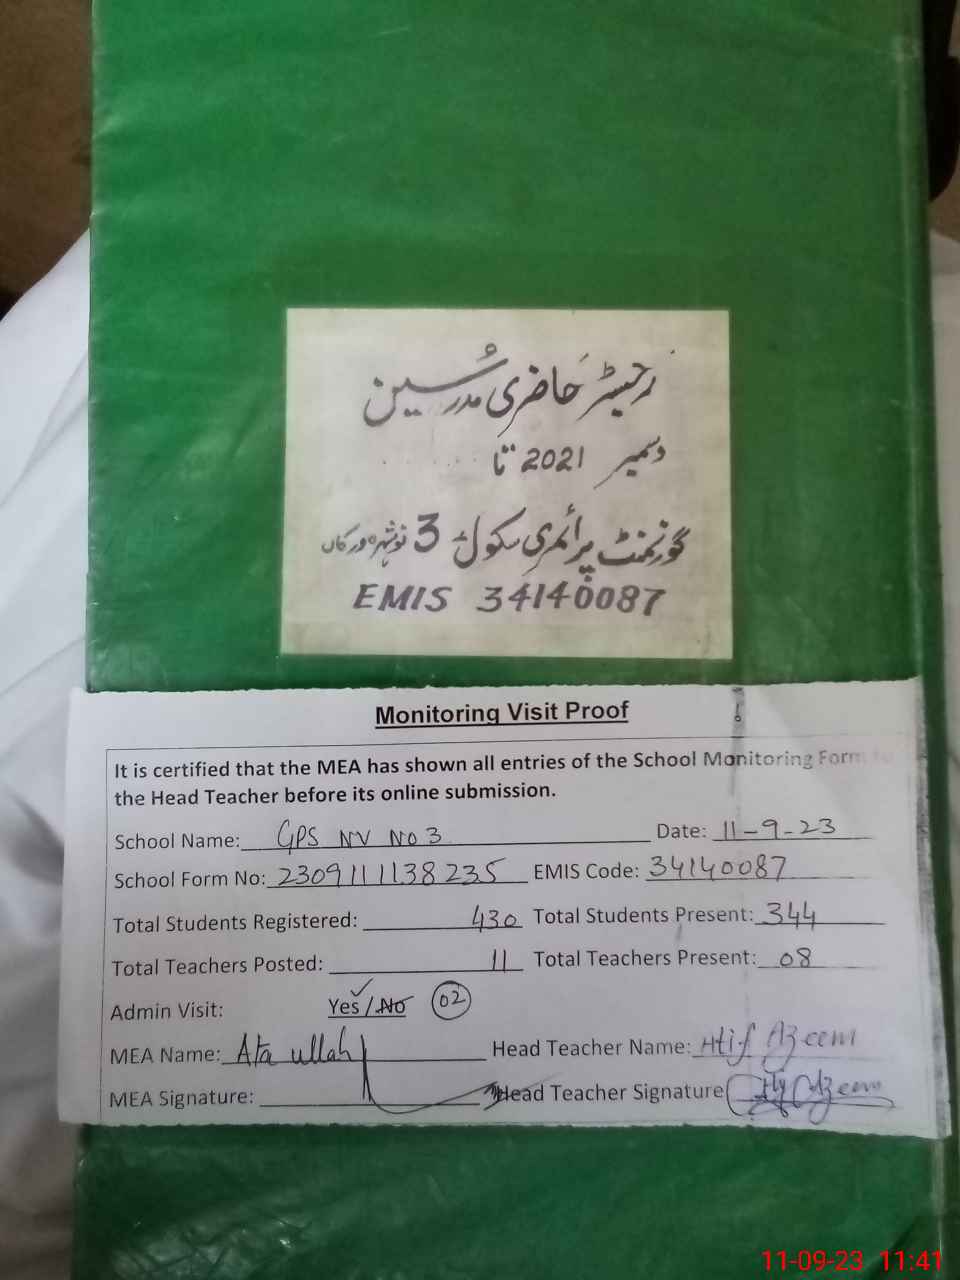 رجسٹر حاضری مدرسین
دسمبر 2021 تا
گورنمنٹ پرائمری سکول 3 نوشہرہ ورکاں
EMIS 34140087
Monitoring Visit Proof
It is certified that the MEA has shown all entries of the School Monitoring Form to
the Head Teacher before its online submission.
School Name: GPS NV No 3 Date: 11-9-23
School Form No: 2309111138235 EMIS Code: 34140087
Total Students Registered: 430 Total Students Present: 344
Total Teachers Posted: 11 Total Teachers Present: 08
Admin Visit: Yes/No 02
MEA Name: Ata ullah Head Teacher Name: Atif Azeem
MEA Signature: Head Teacher Signature Azeem
11-09-23 11:41